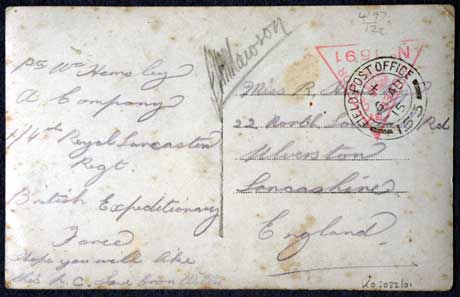 Pte Wm Hemsley
A Company
1/4th Royal Lancaster
Regt.
British Expeditionary
Force
Hope you will like
this P.C. Love from Willie
Miss R
22 North Rd
Ulverston
Lancashire
England
FIELD POST OFFICE
155
15
No 1691
K.O.2022/01